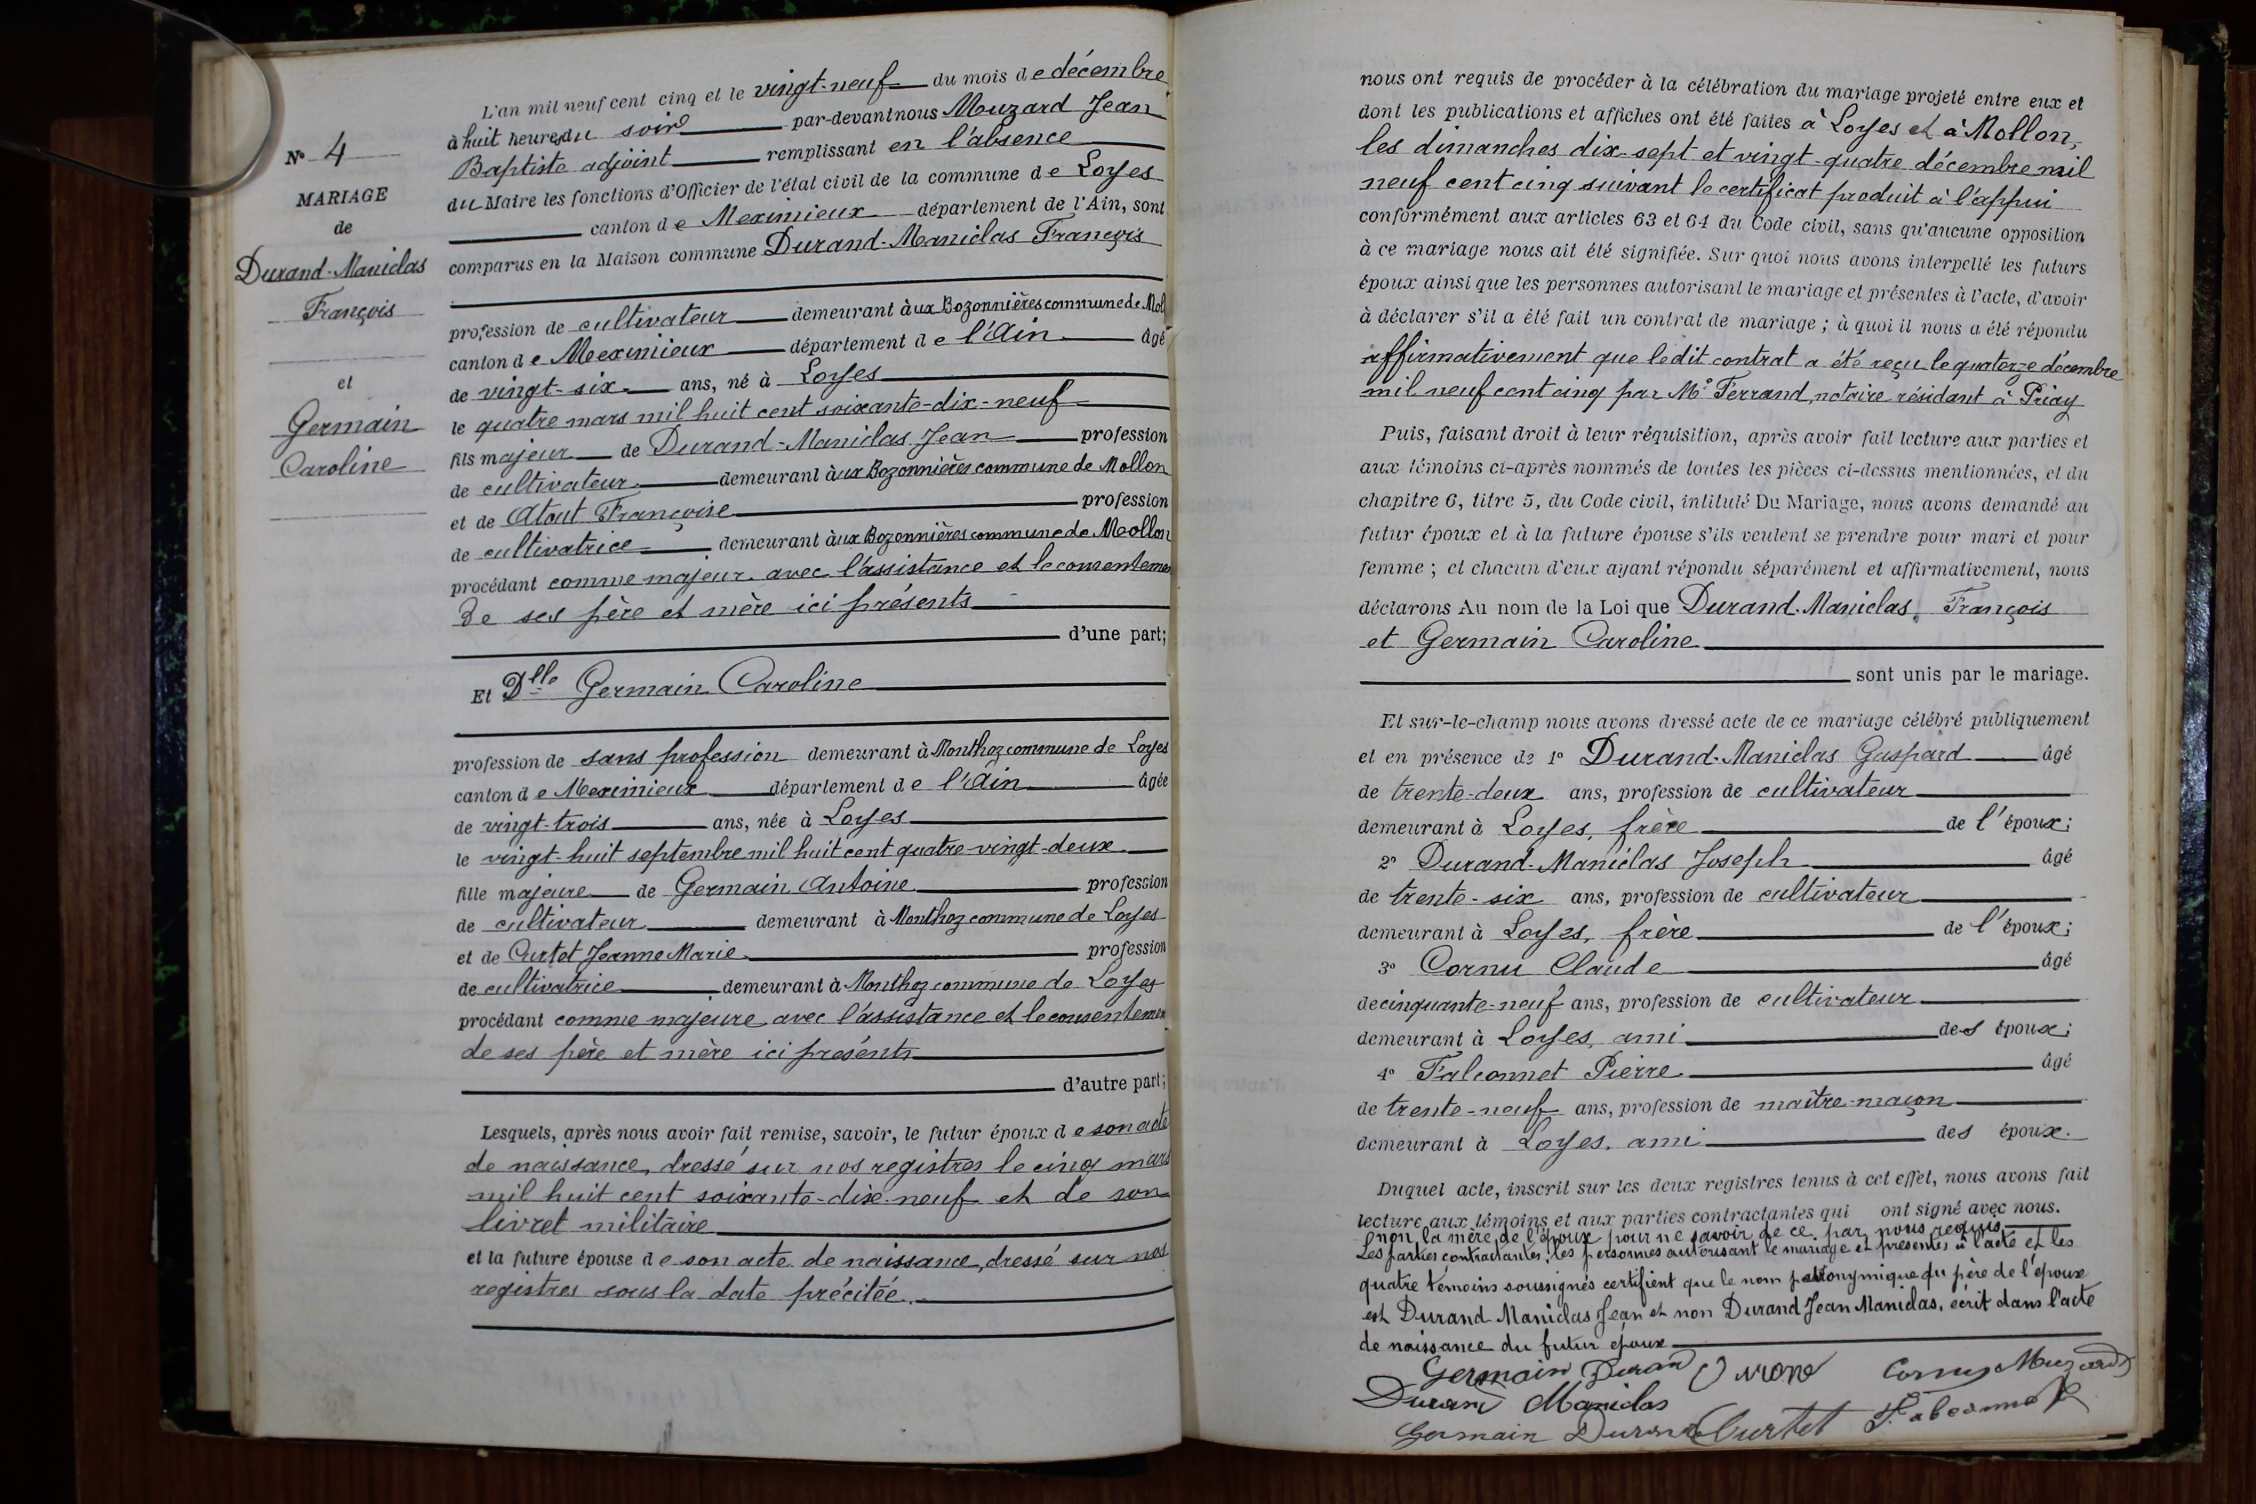 N° 4
MARIAGE
de
Durand-Maniclas
François
et
Germain
Caroline
L'an mil neuf cent cinq et le vingt-neuf du mois de décembre
à huit heures du soir par-devant nous Muzard Jean
Baptiste adjoint remplissant en l'absence
du Maire les fonctions d'Officier de l'état civil de la commune de Loyes
canton de Meximieux département de l'Ain, sont
comparus en la Maison commune Durand-Maniclas François
profession de cultivateur demeurant à aux Bozonnières commune de Mol
canton de Meximieux département de l'Ain âgé
de vingt-six ans, né à Loyes
le quatre mars mil huit cent soixante-dix-neuf
fils majeur de Durand-Maniclas Jean profession
de cultivateur demeurant à aux Bozonnières commune de Mollon
et de Atout Françoise profession
de cultivatrice demeurant à aux Bozonnières commune de Mollon
procédant comme majeur avec l'assistance et le consentemen
de ses père et mère ici présents
d'une part;
Et Dlle Germain Caroline
profession de sans profession demeurant à Monthoz commune de Loyes
canton de Meximieux département de l'Ain âgée
de vingt-trois ans, née à Loyes
le vingt-huit septembre mil huit cent quatre-vingt-deux
fille majeure de Germain Antoine profession
de cultivateur demeurant à Monthoz commune de Loyes
et de Curtet Jeanne Marie profession
de cultivatrice demeurant à Monthoz commune de Loyes
procédant comme majeure avec l'assistance et le consentemen
de ses père et mère ici présents
d'autre part;
Lesquels, après nous avoir fait remise, savoir, le futur époux de son acte
de naissance, dressé sur nos registres le cinq mars
mil huit cent soixante-dix-neuf et de son
livret militaire
et la future épouse de son acte de naissance, dressé sur nos
registres sous la date précitée.
nous ont requis de procéder à la célébration du mariage projeté entre eux et
dont les publications et affiches ont été faites à Loyes et à Mollon,
les dimanches dix-sept et vingt-quatre décembre mil
neuf cent cinq suivant le certificat produit à l'appui
conformément aux articles 63 et 64 du Code civil, sans qu'aucune opposition
à ce mariage nous ait été signifiée. Sur quoi nous avons interpellé les futurs
époux ainsi que les personnes autorisant le mariage et présentes à l'acte, d'avoir
à déclarer s'il a été fait un contrat de mariage ; à quoi il nous a été répondu
affirmativement que ledit contrat a été reçu le quatorze décembre
mil neuf cent cinq par Me Ferrand, notaire résidant à Priay
Puis, faisant droit à leur réquisition, après avoir fait lecture aux parties et
aux témoins ci-après nommés de toutes les pièces ci-dessus mentionnées, et du
chapitre 6, titre 5, du Code civil, intitulé Du Mariage, nous avons demandé au
futur époux et à la future épouse s'ils veulent se prendre pour mari et pour
femme ; et chacun d'eux ayant répondu séparément et affirmativement, nous
déclarons Au nom de la Loi que Durand-Maniclas, François
et Germain Caroline
sont unis par le mariage.
Et sur-le-champ nous avons dressé acte de ce mariage célébré publiquement
et en présence de 1° Durand-Maniclas Gaspard âgé
de trente-deux ans, profession de cultivateur
demeurant à Loyes, frère de l'époux;
2° Durand-Maniclas Joseph âgé
de trente-six ans, profession de cultivateur
demeurant à Loyes, frère de l'époux;
3° Cornu Claude âgé
de cinquante-neuf ans, profession de cultivateur
demeurant à Loyes, ami des époux;
4° Falconnet Pierre âgé
de trente-neuf ans, profession de maître-maçon
demeurant à Loyes, ami des époux.
Duquel acte, inscrit sur les deux registres tenus à cet effet, nous avons fait
lecture aux témoins et aux parties contractantes qui ont signé avec nous.
non la mère de l'époux pour ne savoir de ce par nous requis
Les parties contractantes, les personnes autorisant le mariage et présentes à l'acte et les
quatre témoins soussignés certifient que le nom patronymique du père de l'époux
est Durand Maniclas Jean et non Durand Jean Maniclas, écrit dans l'acte
de naissance du futur époux
Germain Duran Cornu Muzard
Durand Maniclas
Germain Durand Curtet Falconnet